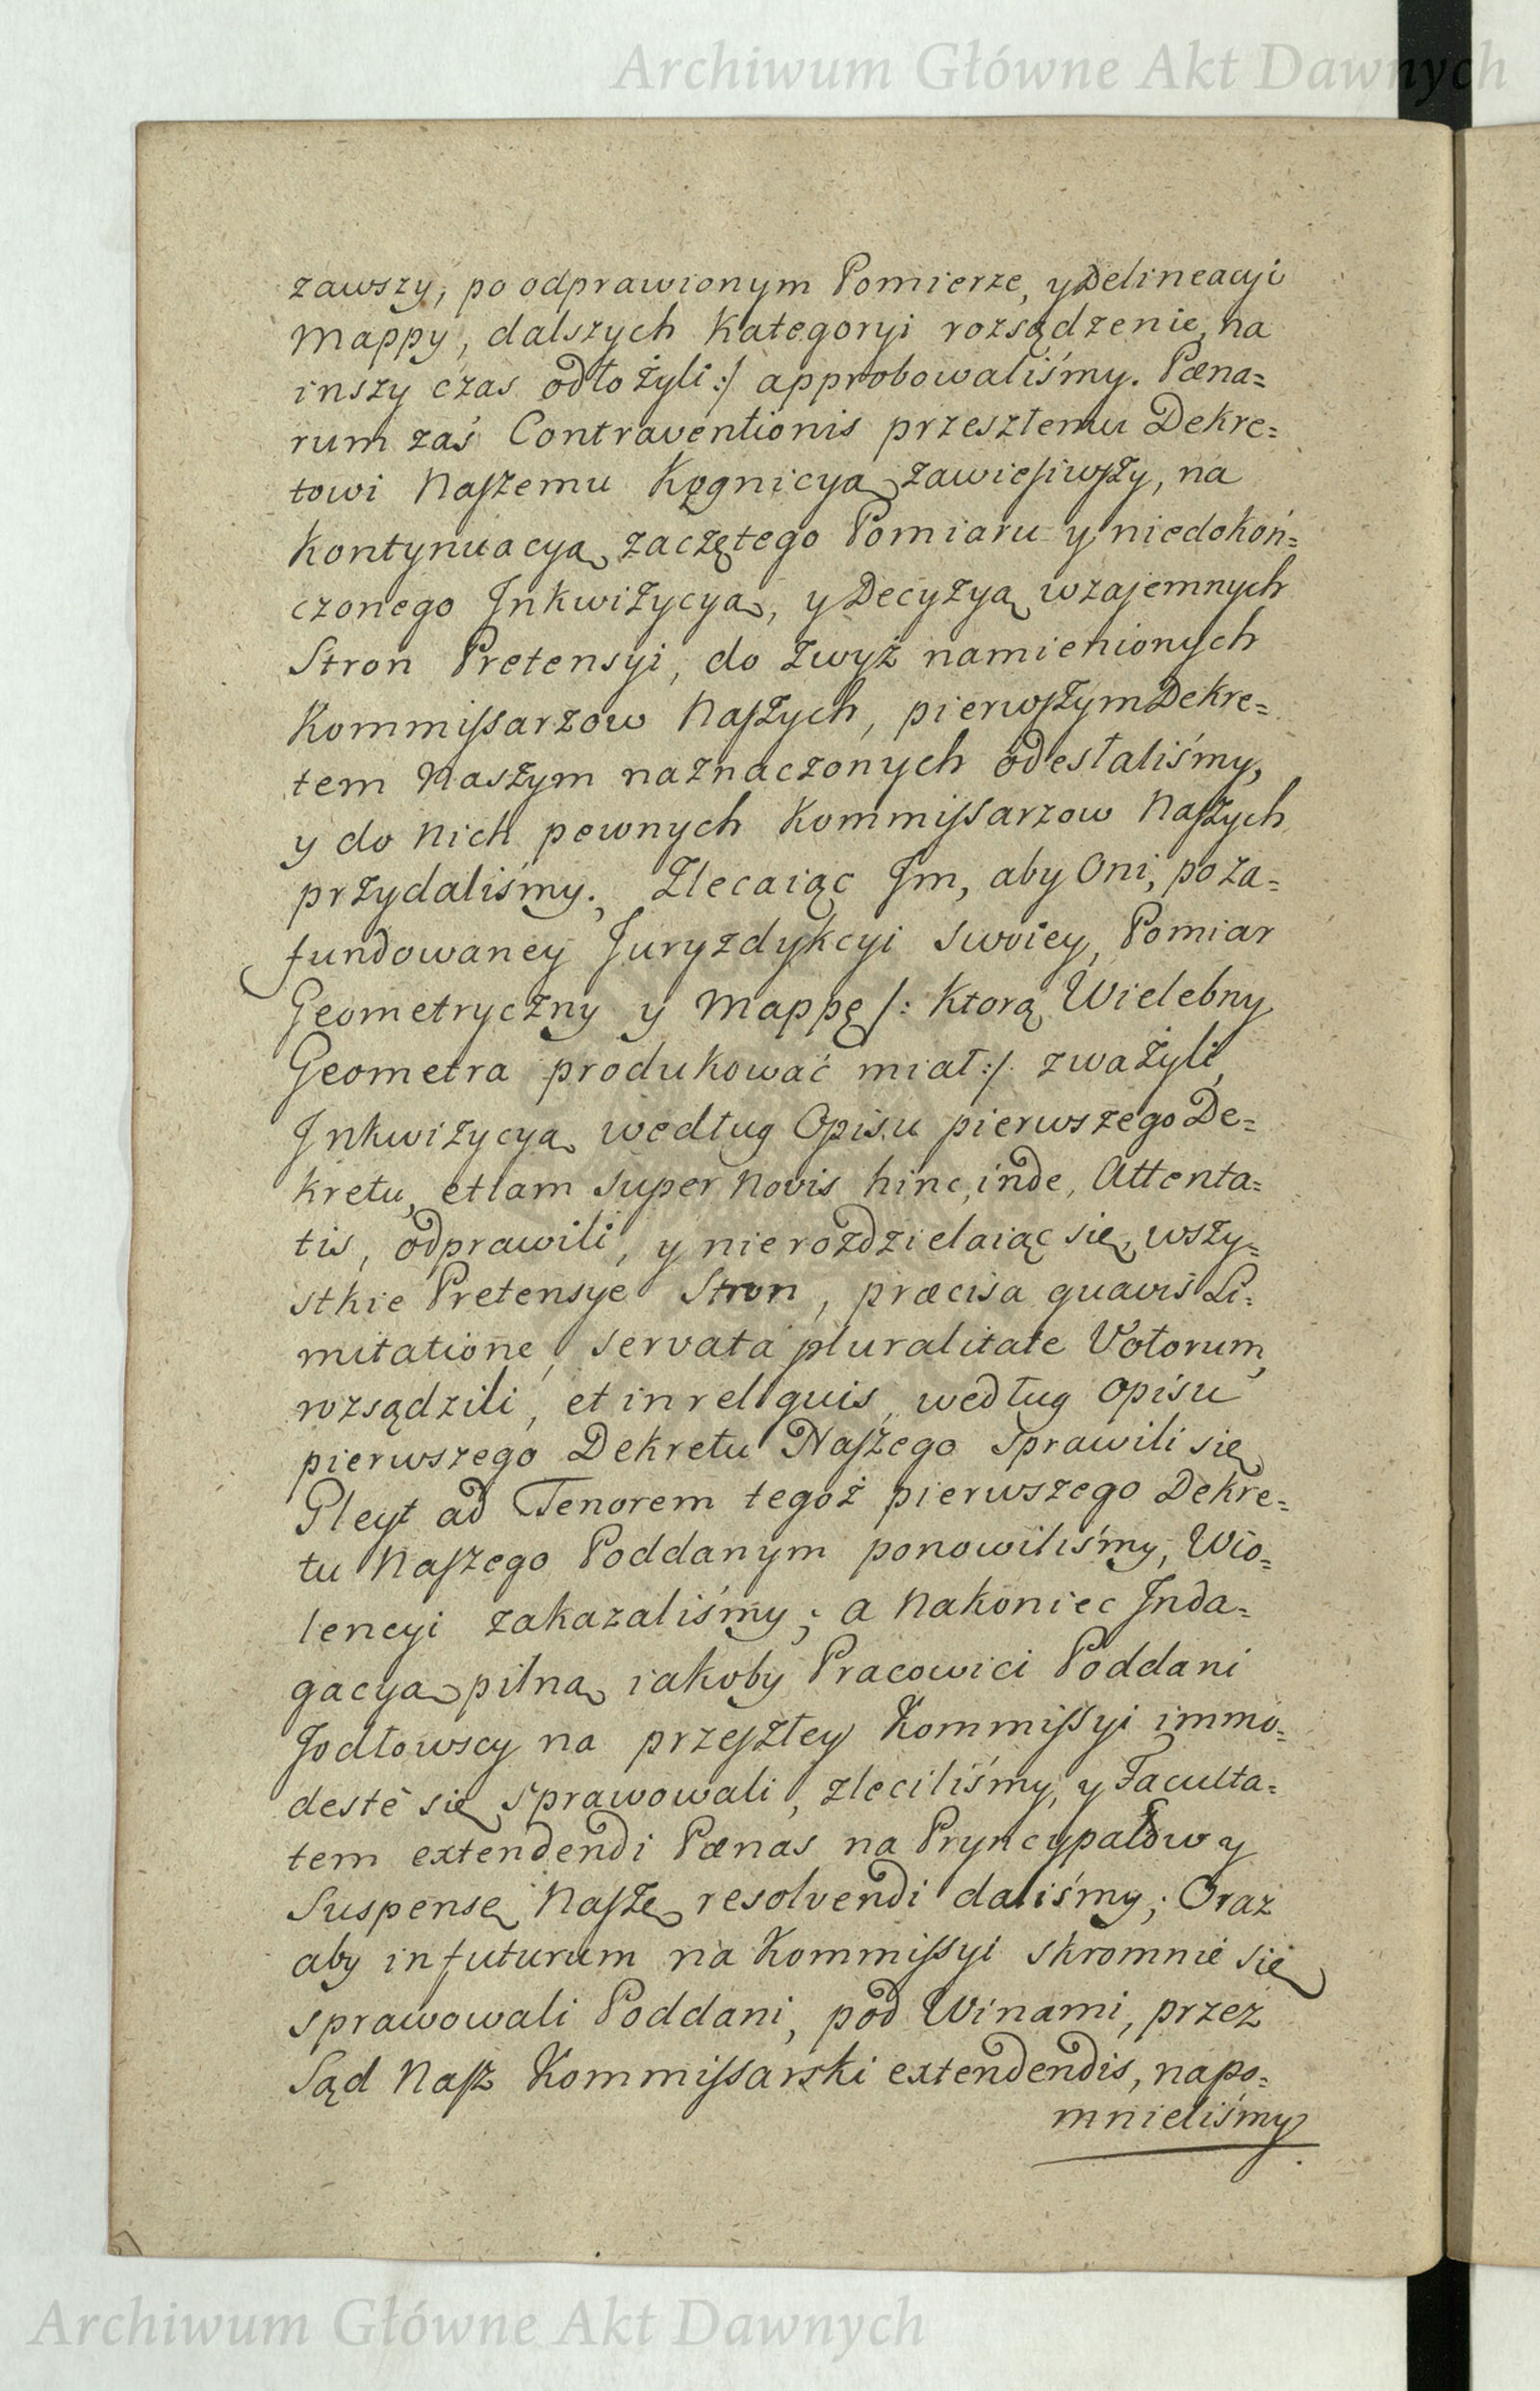 Archiwum Główne Akt Dawnych
zawszy, po odprawionym Pomierze, y Delineacyi
Mappy, dalszych Kategoryi rozsądzenie, na
inszy czas odłożyli :/ approbowaliśmy. Pœna=
rum zaś Contraventionis przeszłemu Dekre=
towi Naszemu Kognicyą zawiesiwszy, na
Kontynuacyą zaczętego Pomiaru y niedokoń=
czonego Inkwizycyą, y Decyzyą wzajemnych
Stron Pretensyi, do zwyż namienionych
Kommissarzow Naszych, pierwszym Dekre=
tem Naszym naznaczonych odesłaliśmy,
y do Nich pewnych Kommissarzow Naszych
przydaliśmy. Zlecaiąc Im, aby Oni, po za=
fundowaney Juryzdykcyi swoiey, Pomiar
Geometryczny y Mappę /: Ktorą Wielebny
Geometra produkować miał :/ zważyli,
Inkwizycyą według Opisu pierwszego De=
kretu, etiam super Novis hinc, inde, Attenta=
tis, odprawili, y nierozdzielaiąc się, wszy=
stkie Pretensye Stron, præcisa quavis Li=
mitatione, servata pluralitate Votorum,
rozsądzili, et in reliquis, według opisu
pierwszego Dekretu Naszego sprawili się
Gleyt ad Tenorem tegoż pierwszego Dekre=
tu Naszego Poddanym ponowiliśmy, Wio=
lencyi zakazaliśmy; a Nakoniec Inda=
gacyą pilną iakoby Pracowici Poddani
Jodłowscy na przeszłey Kommissyi immo=
destè się sprawowali, zleciliśmy, y Faculta=
tem extendendi Pœnas na Pryncypałow y
Suspensę Naszę resolvendi daliśmy; Oraz
aby in futurum na Kommissyi skromnie się
sprawowali Poddani, pod Winami, przez
Sąd Nasz Kommissarski extendendis, napo=
mnieliśmy
Archiwum Główne Akt Dawnych